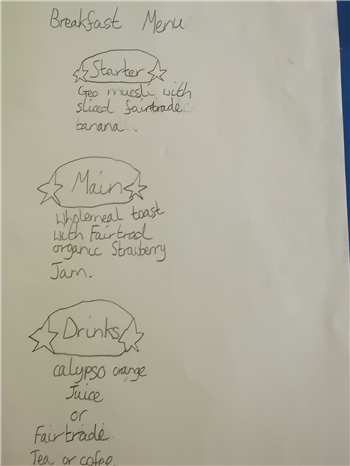 Breakfast Menu
Starter
Geo muesli with
sliced fairtrade
banana..
Main
wholemeal toast
with Fairtrad
organic Strawberry
Jam.
Drinks
calypso orange
Juice
or
Fairtrade
Tea or cofee